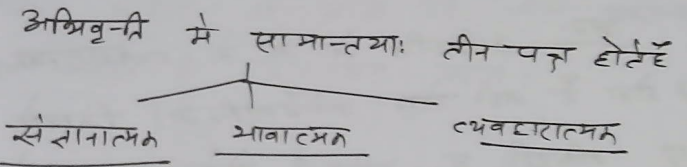 अभिवृत्ति में सामान्तया: तीन पक्ष होते हैं
संज्ञानात्मक भावात्मक व्यवहारात्मक